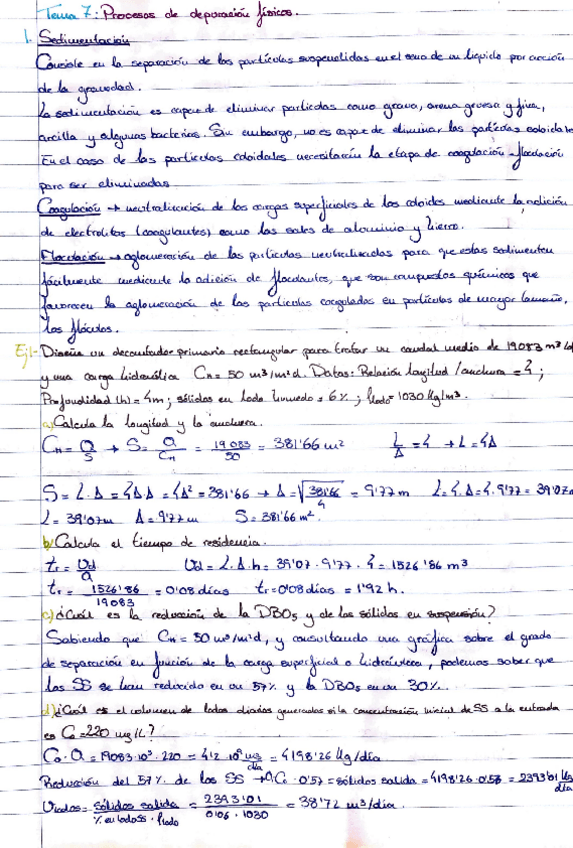 Tema 7: Procesos de depuración físicos.
1. Sedimentación
Consiste en la separación de las partículas suspendidas en el seno de un líquido por acción
de la gravedad.
La sedimentación es capaz de eliminar partículas como grava, arena gruesa y fina,
arcilla y algunas bacterias. Sin embargo, no es capaz de eliminar las partículas coloidale
En el caso de las partículas coloidales necesitarán la etapa de coagulación-floculación
para ser eliminadas
Coagulación → neutralización de las cargas superficiales de los coloides mediante la adición
de electrolitos (coagulantes) como las sales de aluminio y hierro.
Floculación → aglomeración de las partículas neutralizadas para que estas sedimenten
fácilmente mediante la adición de floculantes, que son compuestos químicos que
favorecen la aglomeración de las partículas coaguladas en partículas de mayor tamaño,
los flóculos.
Ej1- Diseña un decantador primario rectangular para tratar un caudal medio de 19083 m³/d
y una carga hidraúlica CH = 50 m³/m²d. Datos: Relación longitud/anchura = 4;
Profundidad (h) = 4m; sólidos en lodo húmedo = 6%; ρlodo = 1030 Kg/m³.
a) Calcula la longitud y la anchura.
CH = Q/S → S = Q/CH = 19083/50 = 381'66 m² L/A = 4 → L = 4A
S = L·A = 4A·A = 4A² = 381'66 → A = √381'66/4 = 9'77 m L = 4·A = 4·9'77 = 39'07m
L = 39'07m A = 9'77m S = 381'66 m²
b) Calcula el tiempo de residencia.
tr = Vd/Q Vd = L·A·h = 39'07·9'77·4 = 1526'86 m³
tr = 1526'86/19083 = 0'08 días tr = 0'08 días = 1'92 h.
c) ¿Cuál es la reducción de la DBO5 y de los sólidos en suspensión?
Sabiendo que CH = 50 m³/m²d, y consultando una gráfica sobre el grado
de separación en función de la carga superficial o hidraúlica, podemos saber que
los SS se han reducido en un 57% y la DBO5 en un 30%.
d) ¿Cuál es el volumen de lodos diarios generados si la concentración inicial de SS a la entrada
es C0 = 220 mg/L?
C0·Q = 19083·10³·220 = 4'12·10⁹ mg/día = 4198'26 Kg/día
Reducción del 57% de los SS → Q·C0·0'57 = sólidos salida = 4198'26·0'58 = 2393'01 Kg/día
Vlodos = sólidos salida/% en lodo SS · ρlodo = 2393'01/0'06·1030 = 38'72 m³/día.